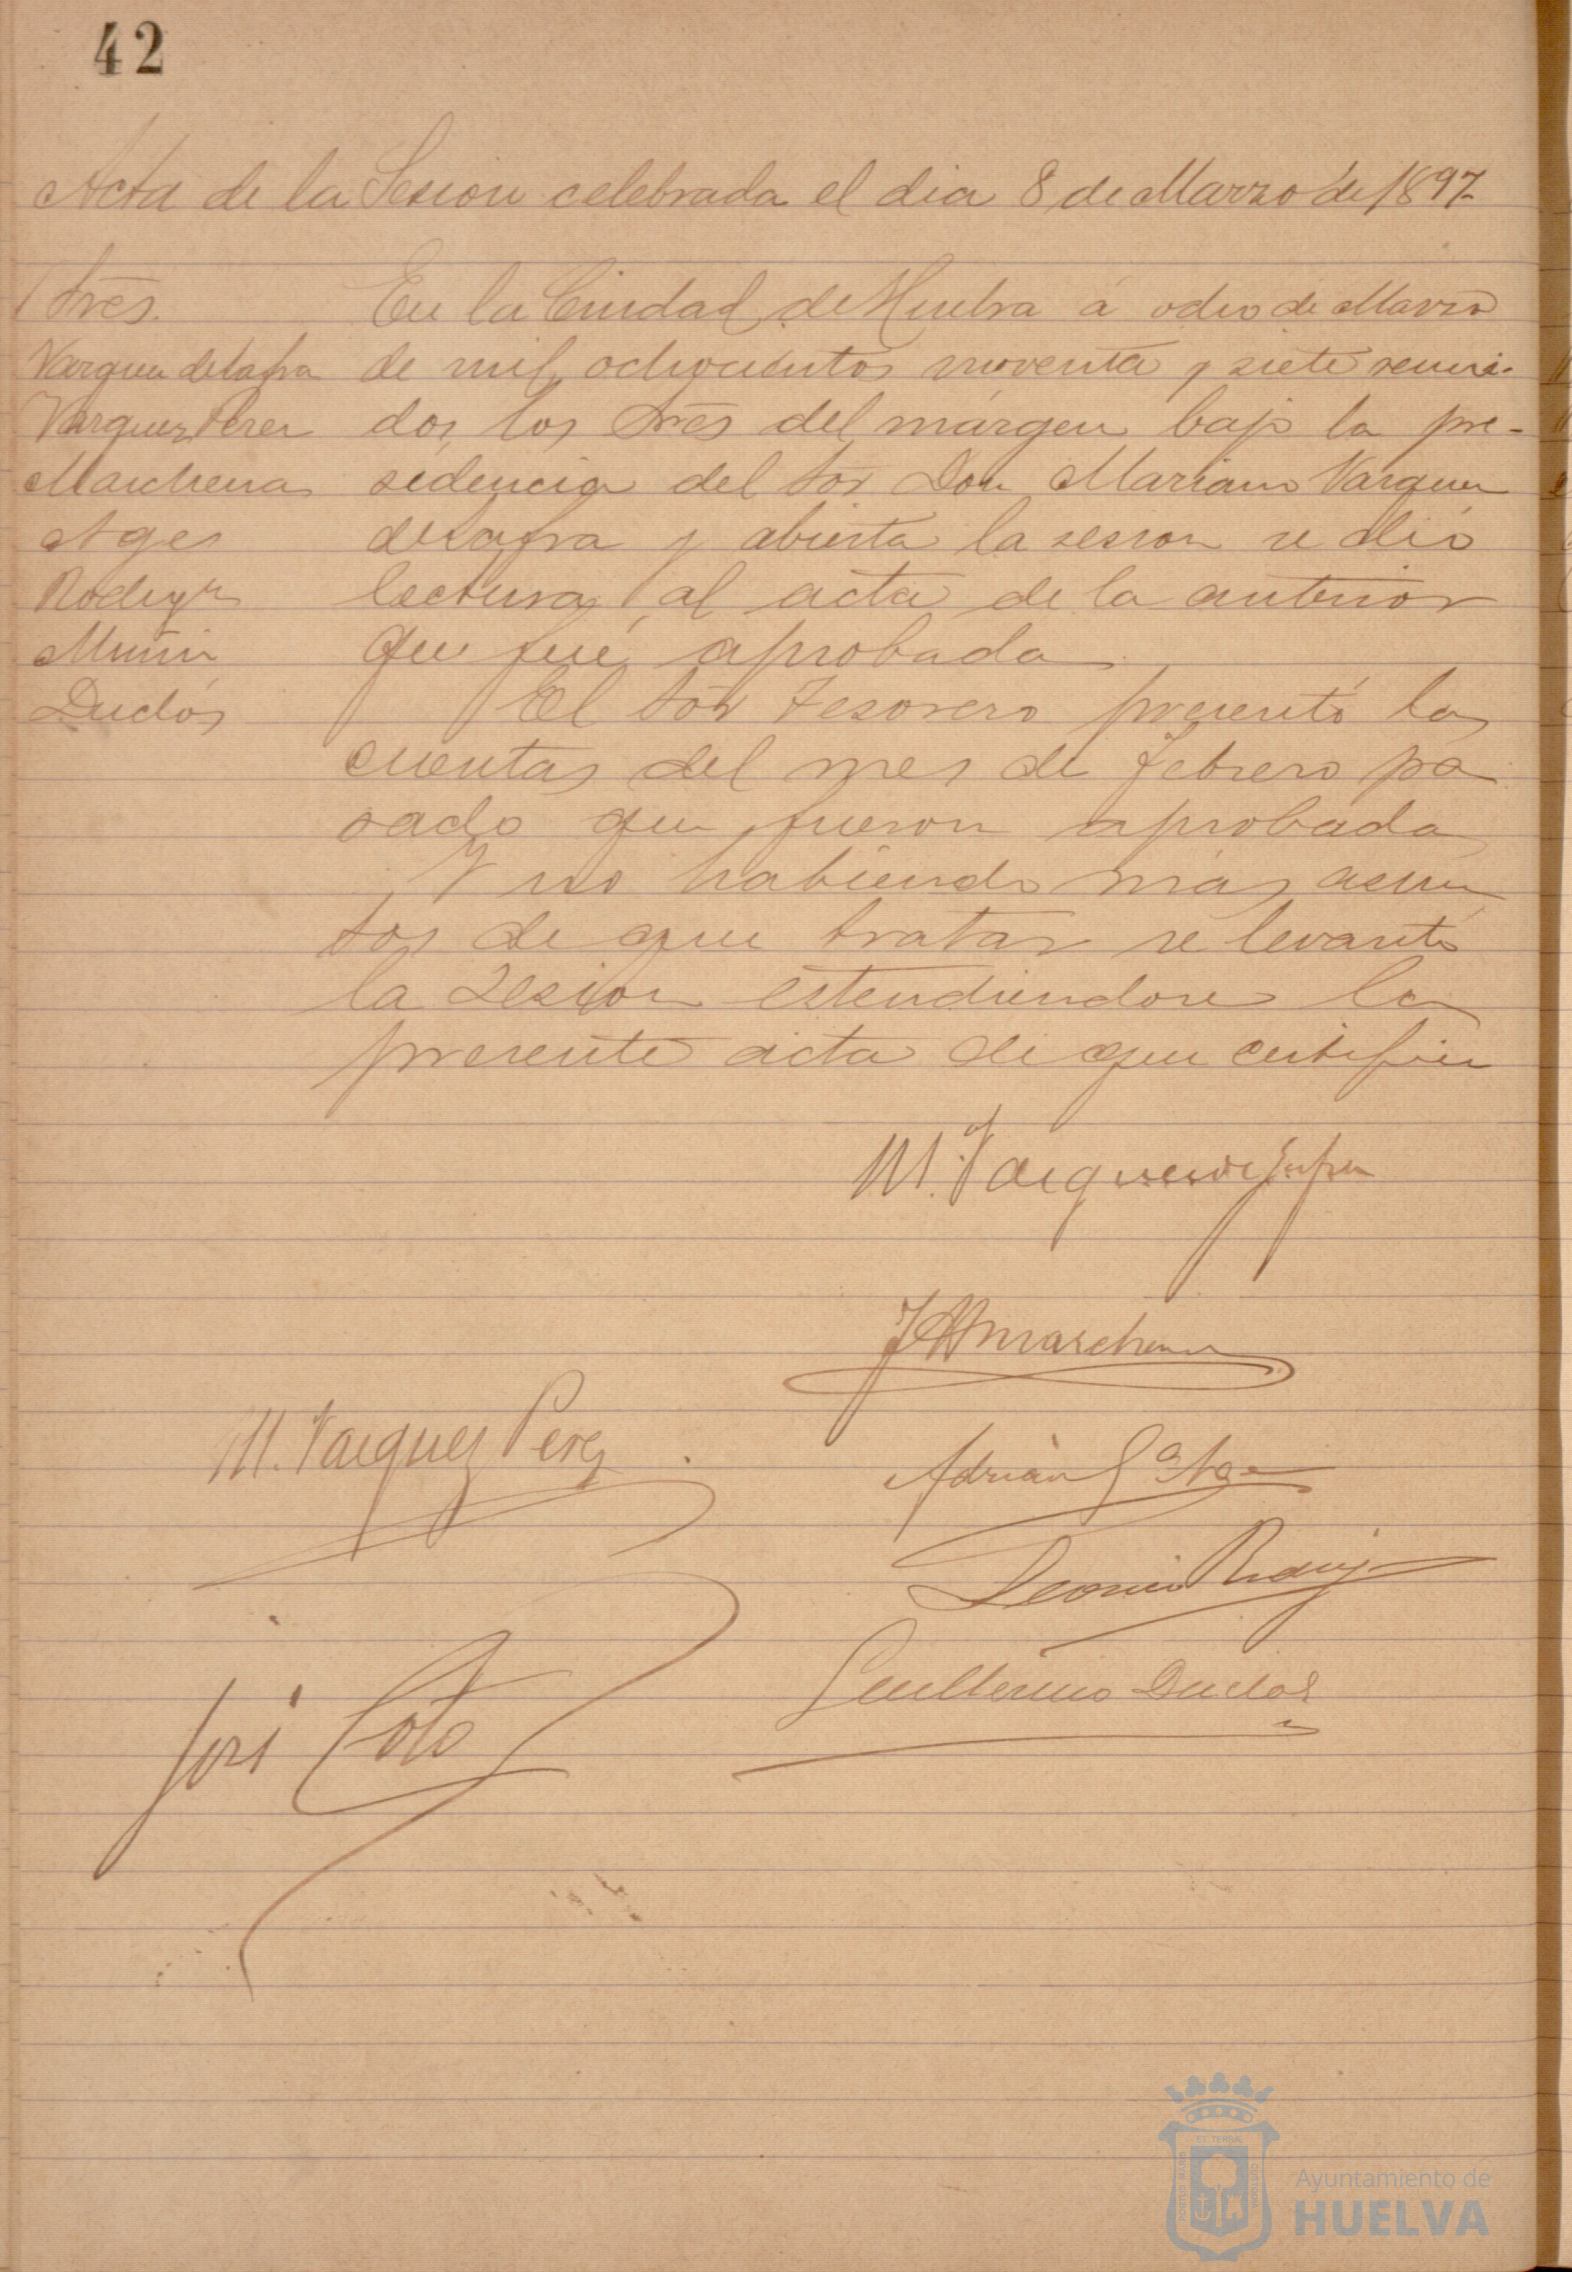 42
Acta de la Sesion celebrada el dia 8 de Marzo de 1897
Sres.
Vazquez de Zafra
Vazquez Perez
Marchena
Age
Rodrigz
Muñiz
Duclós
En la Ciudad de Huelva á ocho de Marzo
de mil ochocientos noventa y siete reuni-
dos los Sres del márgen bajo la pre-
sidencia del Sor Don Mariano Vazquez
de Zafra y abierta la sesion se dió
lectura al acta de la anterior
que fué aprobada
El Sor Tesorero presentó las
cuentas del mes de Febrero pa
sado que fueron aprobadas
Y no habiendo más asun
tos de que tratar se levantó
la Sesion estendiendose la
presente acta de que certifico
M. Vazquez de Zafra
J Marchena
M. Vazquez Perez
Adrián
Leoncio Rodrigz
José Coto
Guillermo Duclós
Ayuntamiento de
HUELVA